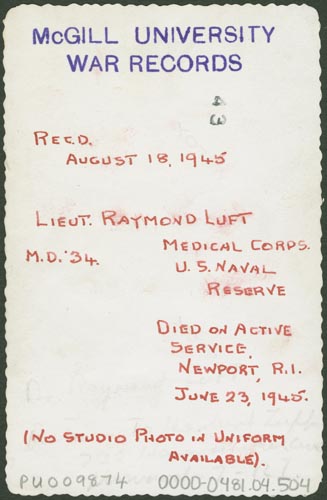 McGILL UNIVERSITY
WAR RECORDS
43
REC.D.
AUGUST 18, 1945
LIEUT. RAYMOND LUFT
M.D. '34. MEDICAL CORPS.
U. S. NAVAL
RESERVE
DIED ON ACTIVE
SERVICE,
NEWPORT, R.I.
JUNE 23, 1945.
(NO STUDIO PHOTO IN UNIFORM
AVAILABLE).
PU009874 0000-0481.04.504